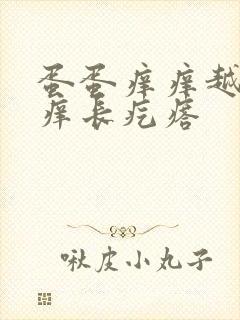 蛋蛋痒痒越
痒长疙瘩
啾皮小丸子